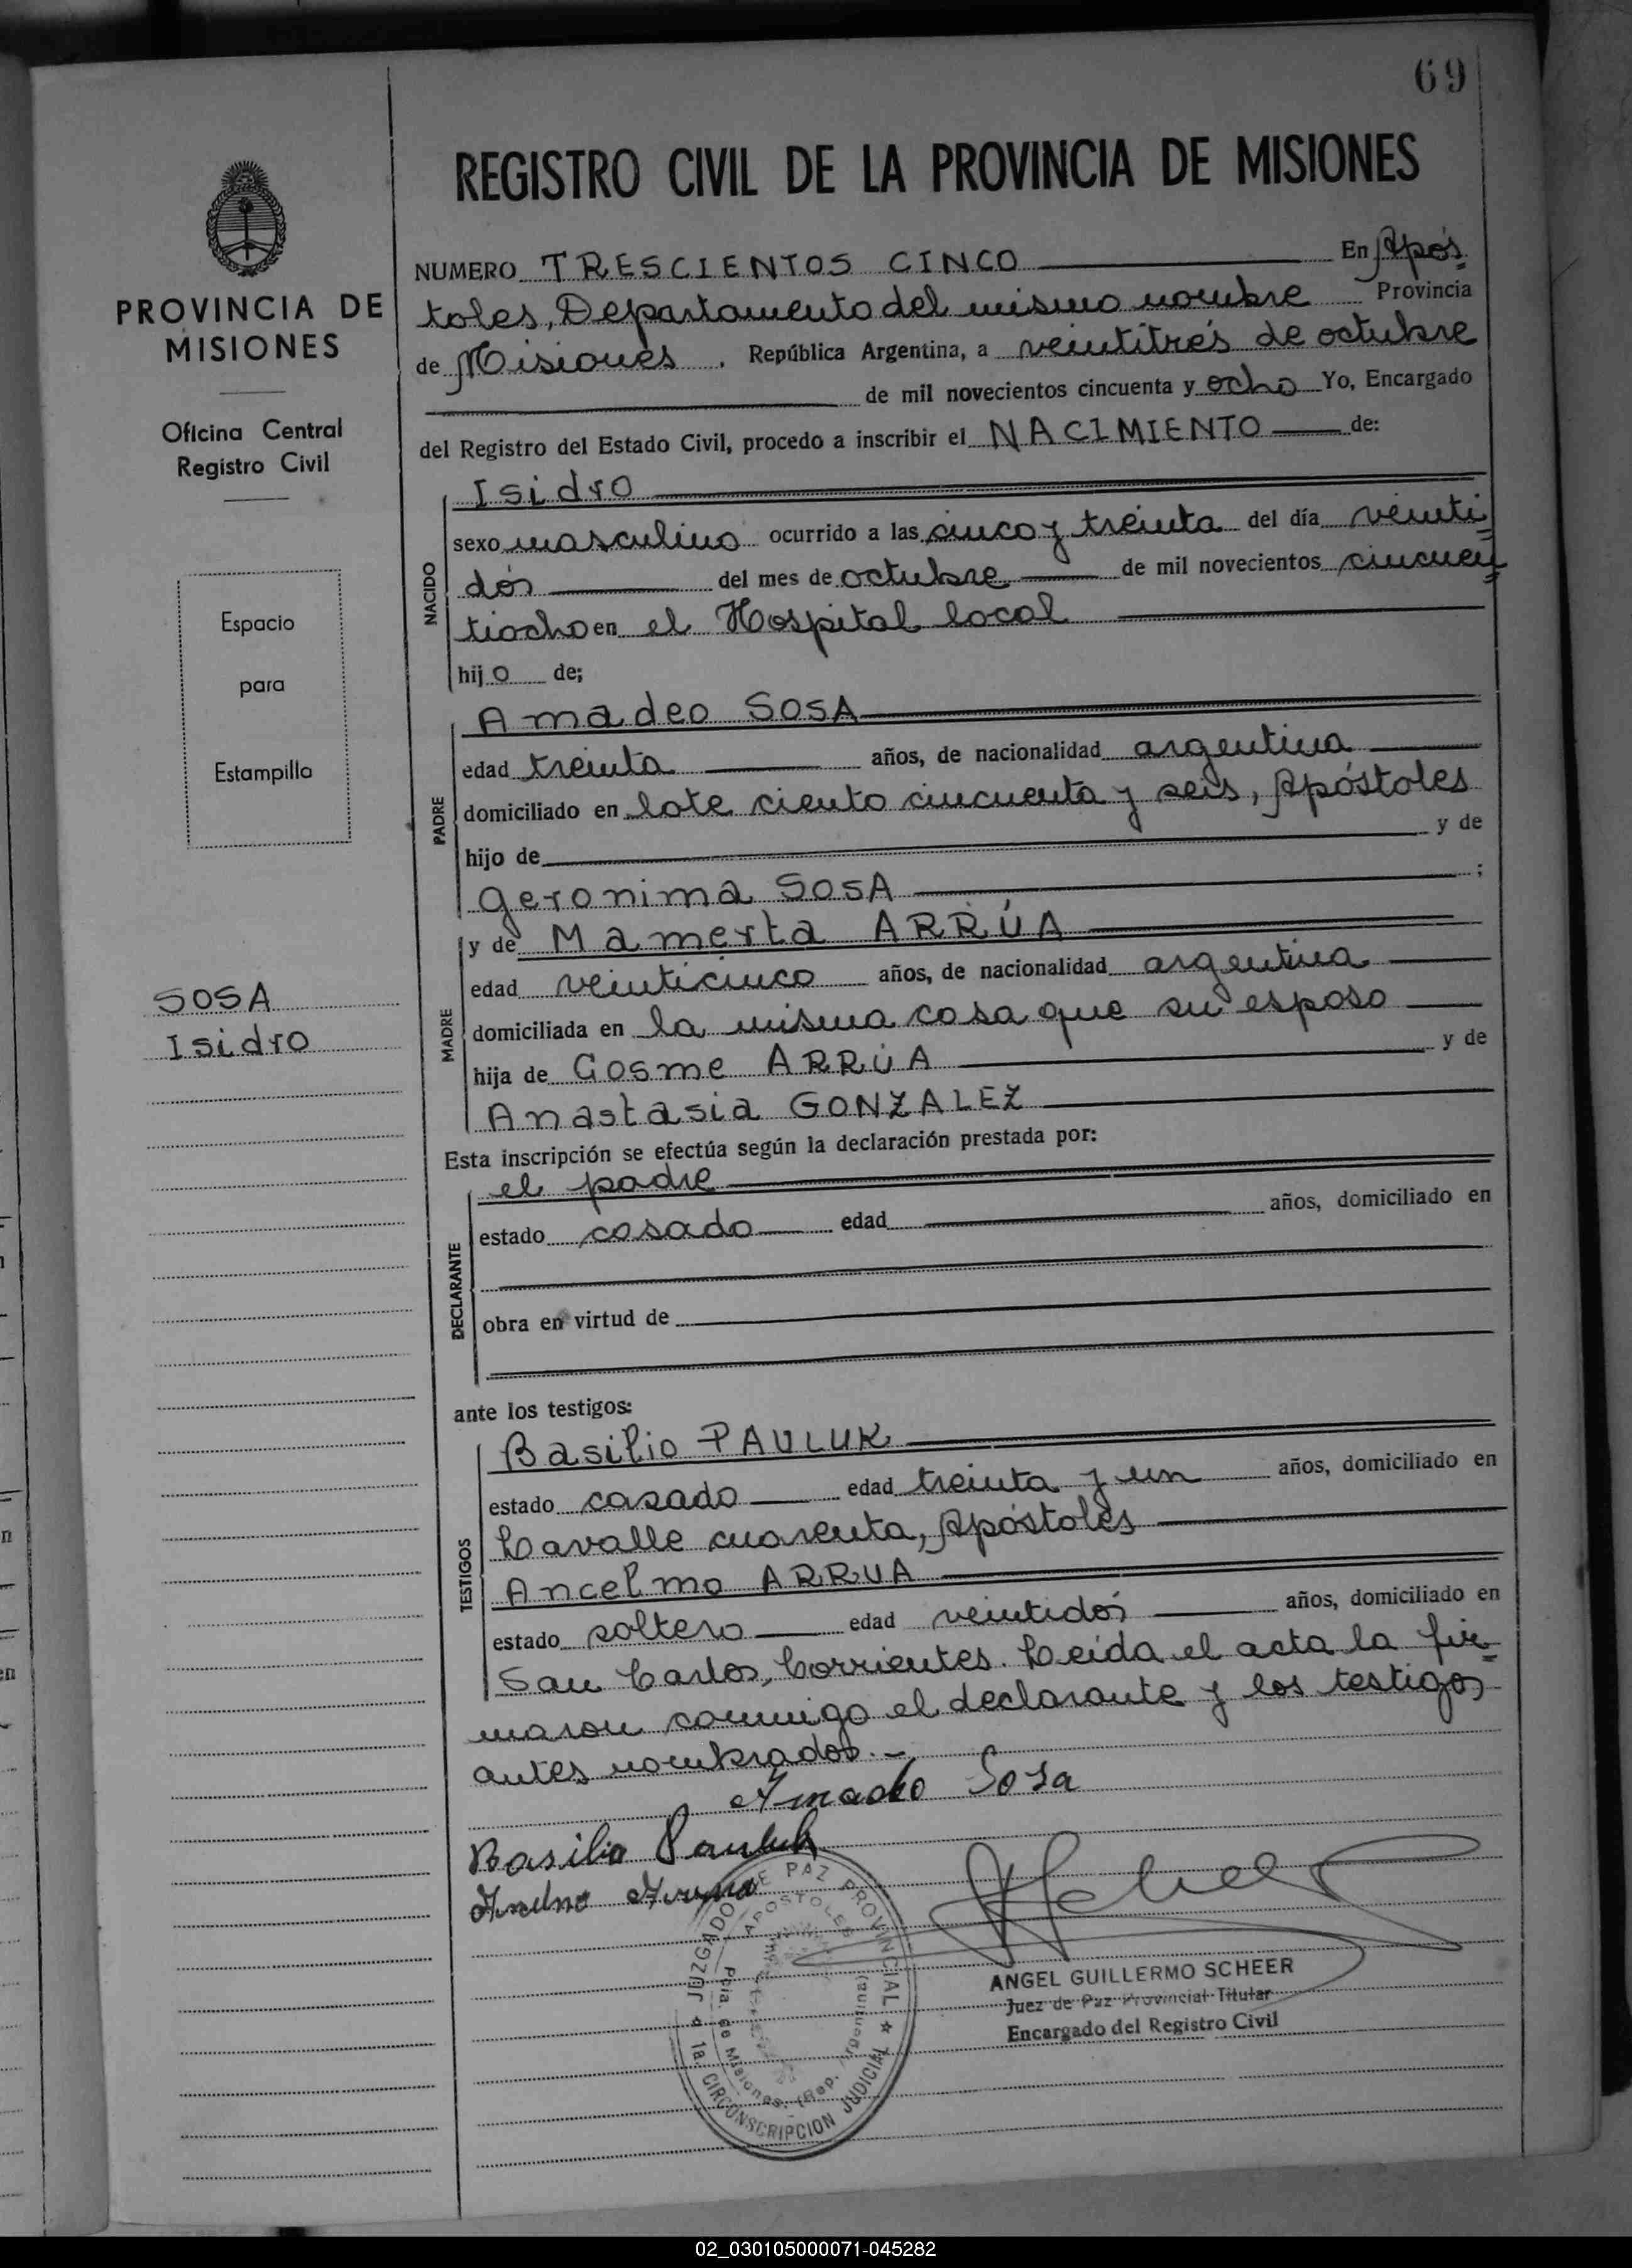 69
REGISTRO CIVIL DE LA PROVINCIA DE MISIONES
PROVINCIA DE
MISIONES
Oficina Central
Registro Civil
Espacio
para
Estampilla
SOSA
Isidro
NUMERO TRESCIENTOS CINCO En Após
toles, Departamento del mismo nombre Provincia
de Misiones, República Argentina, a veintitrés de octubre
de mil novecientos cincuenta y ocho Yo, Encargado
del Registro del Estado Civil, procedo a inscribir el NACIMIENTO de:
NACIDO
Isidro
sexo masculino ocurrido a las cinco y treinta del día veinti
dós del mes de octubre de mil novecientos cincuen
tiocho en el Hospital local
hijo de;
PADRE
Amadeo SOSA
edad treinta años, de nacionalidad argentina
domiciliado en lote ciento cincuenta y seis, Apóstoles
hijo de y de
Geronima SOSA ;
MADRE
y de Mamerta ARRÚA
edad veinticinco años, de nacionalidad argentina
domiciliada en la misma casa que su esposo
hija de Cosme ARRÚA y de
Anastasia GONZALEZ
Esta inscripción se efectúa según la declaración prestada por:
DECLARANTE
el padre
estado casado edad años, domiciliado en
obra en virtud de
ante los testigos:
TESTIGOS
Basilio PAULUK
estado casado edad treinta y un años, domiciliado en
Lavalle cuarenta, Apóstoles
Ancelmo ARRUA
estado soltero edad veintidós años, domiciliado en
San Carlos, Corrientes. Leida el acta la fir
maron conmigo el declarante y los testigos
antes nombrados.-
Amadeo Sosa
Basilio Pauluk
JUZGADO DE PAZ PROVINCIAL
APOSTOLES
Pcia. de Misiones. (Rep. Argentina)
1a. CIRCUNSCRIPCION JUDICIAL
ANGEL GUILLERMO SCHEER
Juez de Paz Provincial Titular
Encargado del Registro Civil
02_030105000071-045282